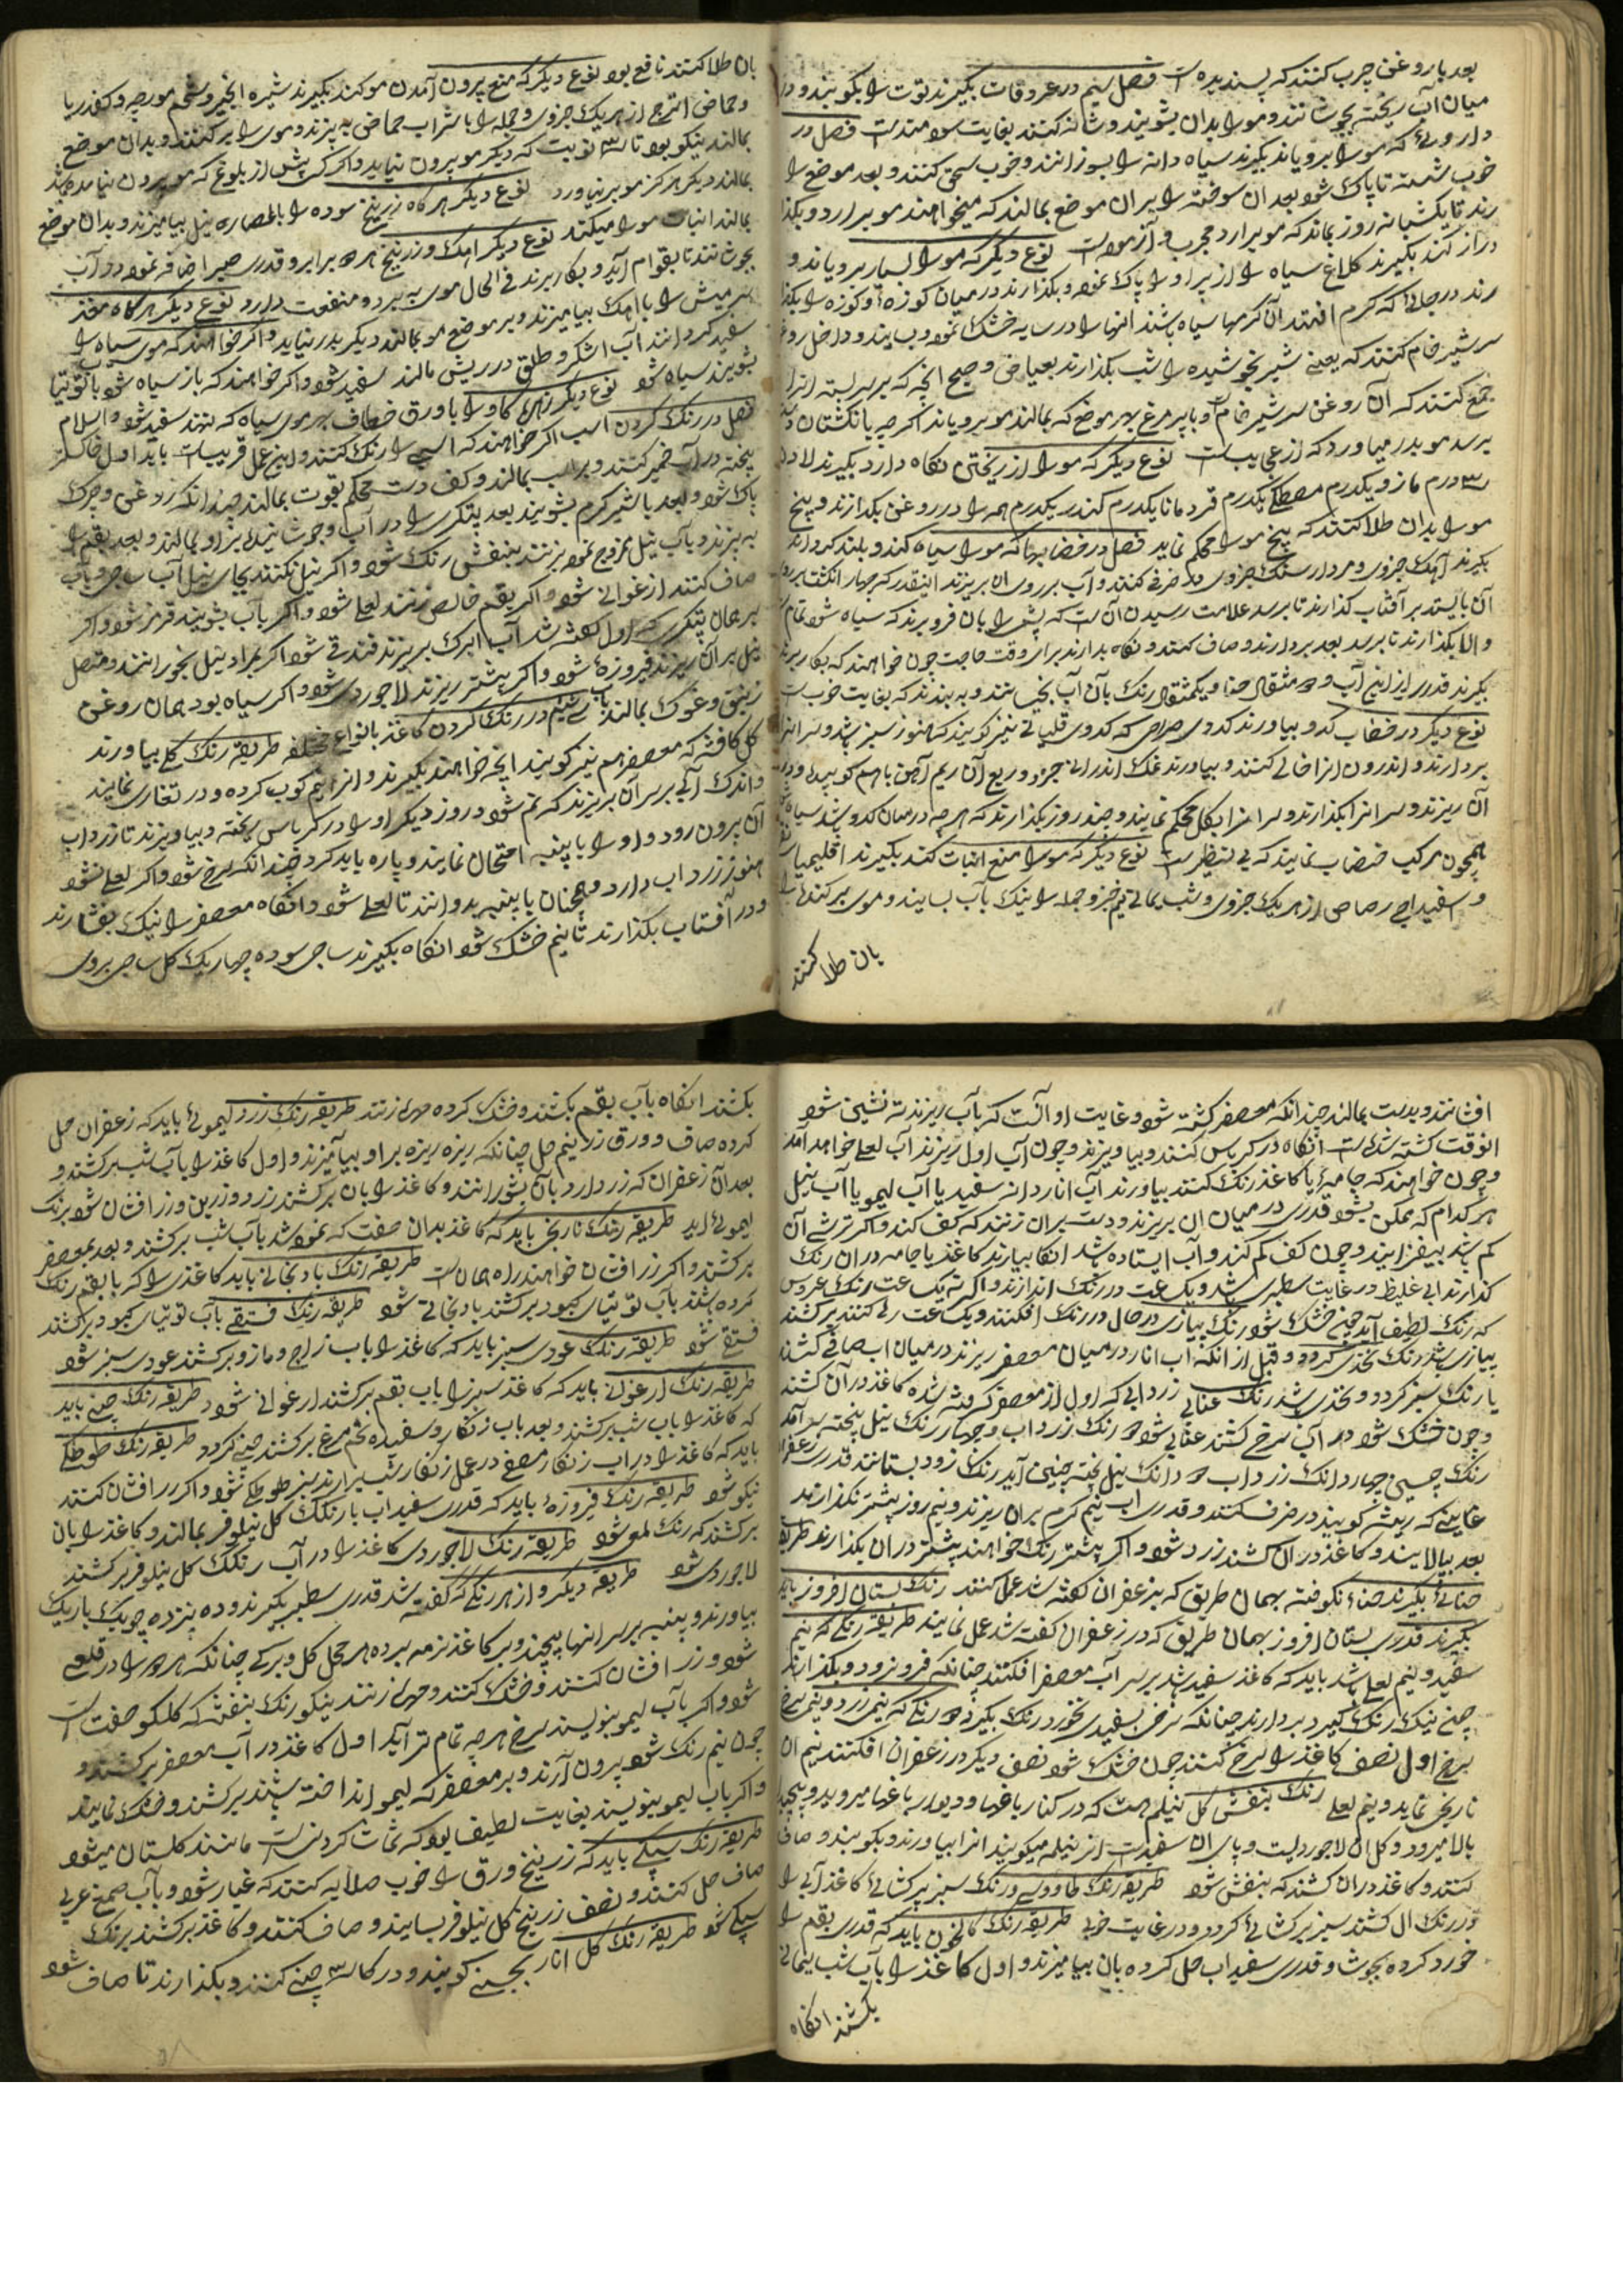 بعد بار و غن چرب کنند که پسندیده است فصل سیم در عروقات بگیرند توت را بکوبند و در
میان آب ریخته بجوشانند و مو را بدان بشویند و شانه کنند بغایت سودمند است فصل در
داروئی که مو را برویاند بگیرند سیاه دانه را بسوزانند و خوب سحق کنند و بعد موضع را
خوب شسته تا پاک شود بعد ان سوخته را بران موضع بمالند که میخواهند مو برارد و بگذا
رند تا یکشبانه روز بماند که مو برارد مجرب و آزموده است نوع دیگر که مو را بسیار برویاند و
دراز کند بگیرند کلاغ سیاه را از پر او را پاک نموده و بگذارند در میان کوزه و کوزه را بگذا
رند در جائی که کرم افتد آن کرمها سیاه باشند انها را در سایه خشک نموده و بسایند و داخل روغن
سر شیر خام کنند که یعنی شیر نجوشیده را شب بگذارند بعیاض و صبح انچه که بر سر بسته انرا
جمع کنند که آن روغن سر شیر خام و با پر مرغ بهر موضع که بمالند مو برویاند اکر چه بانگشتان
برسد مو بدر میاورد که از عجایب است نوع دیگر که مو را از ریختن نگاه دارد بگیرند لادن
سه درم مازو یکدرم مصطکی یکدرم قردمانا یکدرم کندر یکدرم همه را در روغن بگدازند و بیخ
مو را بدان طلا کنند که بیخ مو را محکم نماید فصل در خضابها که مو را سیاه کند و بلند کرداند
بگیرند آهک جزوی و مردار سنگ جزوی در ظرفی کنند و آب بر روی ان بریزند اینقدر که چهار انگشت بر روی
آن بایستد بر آفتاب گذارند تا برسد علامت رسیدن آن است که پشم را بان فرو برند که سیاه شود تمام
و الا بگذارند تا برسد بعد بردارند و صاف کنند و نگاه بدارند برای وقت حاجت چون خواهند که بکار برند
بگیرند قدری از این آب و مثقال حنا و یکمثقال رنگ بان آب بخیسانند و به بندند که بغایت خوب است
نوع دیگر در خضاب کدو بیاورند کدوی صراحی که کدوی قلیانی نیز کویند که هنوز سبز باشد و سر انرا
بردارند و اندرون انرا خالی کنند و بیاورند نمک اندرانی جزوی و ربع آن ریم آهن باهم کوبیده و در
آن ریزند و سر انرا بگذارند و سر انرا بگل محکم نمایند و چند روز بگذارند که هر چه در میان کدو باشد سیاه
همچون مرکب خضاب نمایند که بی نظیر است نوع دیگر که مو را منع انبات کند بگیرند اقلیمیا
و سفیداج رصاص از هر یک جزوی و شب یمانی نیم جزو جمله را نیک بآب بسایند و موی برکنده را
بان طلا کنند
بان طلا کنند نافع بود نوع دیگر که منع بیرون آمدن مو کند بگیرند شیره انجیر و شحم مورچه و کفدریا
و حماض اترج از هر یک جزوی و جمله را با شراب حماض به پزند و موی را برکنند و بدان موضع
بمالند نیکو بود تا سه نوبت که دیگر مو بیرون نیاید و اگر کسی پیش از بلوغ که مو بیرون نیامده باشد
بمالند دیگر هرکز مو برنیاورد نوع دیگر هرکاه زرنیخ سوده را بالعصاره نیل بیامیزند و بدان موضع
بمالند انبات مو را میکند نوع دیگر اهک و زرنیخ هر دو برابر و قدری صبر اضافه نموده در آب
بجوشانند تا بقوام آید و بکار برند فی الحال موی به برد و منفعت دارد نوع دیگر هرکاه مغز
سر میش را با اهک بیامیزند و بر موضع مو بمالند دیگر بدر نیاید و اکر خواهند که موی سیاه را
سفید کردانند آب اشکر و طلق در ریش مالند سفید شود و اکر خواهند که باز سیاه شود با توتیا
بشویند سیاه شود نوع دیگر زهره کاو را با ورق خطاف بهر موی سیاه که بنند سفید شود والسلام
فصل در رنگ کردن اسب اکر خواهند که اسبی را رنگ کنند و این عمل قریبیات باید اول خاکستر
پخته در آب خمیر کنند و بر اسب بمالند و کف دست محکم بقوت بمالند چندانکه روغن و چرک
پاک شود و بعد با شیر کرم بشویند بعد پتکری را در آب و جوشانیده بر او بمالند و بعد بقم را
به پزند و بآب نیل ممزوج نموده بزنند بنفش رنگ شود و اکر نیل نکنند بجای نیل آب
صاف کنند ارغوانی شود و اکر بقم خالص زنند لعلی شود و اکر بآب بشویند قرمز شود و اکر
بر همان پتکری که اول گفته شد آب ابرک بریزند فندقی شود اکر براده نیل بخورانند و متصل
نیل بر آن ریزند فیروزه شود و اکر بیشتر ریزند لاجوردی شود و اکر سیاه بود همان روغن
زیبق و غوک بمالند باب سی ئیم در رنگ کردن کاغذ بانواع مختلفه طریقه رنگ گلی بیاورند
کل کافشه که معصفر هم نیز کویند انچه خواهند بگیرند و انرا نیم کوب کرده و در تغاری نمایند
و اندک آبی بر سر آن بریزند که نم شود و روز دیگر او را در کرباس ریخته و بیاویزند تا زرداب
آن برون رود و او را با پنبه امتحان نمایند و پاره باید کرد چندانکه سرخ شود و اکر لعلی نشود
هنوز زرداب دارد و همچنان با پنبه بدوانند تا لعلی شود و انکاه معصفر را نیک بفشارند
و در آفتاب بگذارند تا نیم خشک شود انکاه بگیرند ساجی سوده چهار یک کل ساجی بروی
افشانند و بدست بمالند چندانکه معصفر کشته شود و غایت او آنست که بآب ریزند ته نشین شود
انوقت کشته شده است انکاه در کرباس کنند و بیاویزند و چون آب اول ریزند آب لعلی خواهد آمد
و چون خواهند که جامه یا کاغذ رنگ کنند بیاورند آب انار دانه سفید یا آب لیمو یا آب نیل
هر کدام که ممکن بشود قدری در میان ان بریزند و دست بران زنند که کف کند و اکر ترشی آن
کم باشد بیفزایند و چون کف کم کنند و آب ایستاده باشد انکاه بیارند کاغذ یا جامه در ان رنگ
گذارند ابی غلیظ در غایت سطبری باشد و یک ساعت در رنگ اندازند و اکر نه یک ساعت رنگ عروسی
که رنگ لطیف آید چون خشک شود رنگ پیازی در حال در رنگ افکنند و یک ساعت رها کنند برکشند
پیازی باشد رنگ نخدی کردد و قبل از انکه اب انار در میان معصفر ریزند در میان اب صافی کشند
یا رنگ سبز کردد و نخدی باشد رنگ عنابی زردابی که اول از معصفر کرفته شده کاغذ در آن کشند
و چون خشک شود در آب سرخ کشند عنابی شود رنگ زرداب و چهار رنگ نیل پخته
رنگ چسبی چهار دانگ زرداب دو دانگ نیل پخته چنین آید رنگ زرد بستانند قدری زعفران
غایتی که ریشه کویند در ظرف کنند و قدری اب نیم کرم بران ریزند و نیم روز بیشتر نگذارند
بعد بپالایند و کاغذ در ان کشند زرد شود و اکر بیشتر رنگ خواهند بیشتر در ان بگذارند طریقه
حنائی بگیرند حنا نکوفته بهمان طریق که بزعفران گفته شد عمل کنند رنگ بستان افروز باید
بگیرند قدری بستان افروز بهمان طریق که در زعفران گفته شد عمل نمایند طریقه رنگی که نیم
سفید و نیم لعلی باشد باید که کاغذ سفید باشد بر سر آب معصفر افکنند چنانکه فرو نرود و بگذارند
چنین نیک رنگ کیرد بردارند چنانکه طرف سفیدی نخورد رنگ بگیرند و رنگی که نیمی زرد و نیمی سرخ
سرخ اول نصف کاغذ را سرخ کنند چون خشک شود نصف دیگر در زعفران افکنند نیم ان
نارنجی نماید و نیم لعلی رنگ بنفش گل نیلم است که در کنار باغها و دیوار باغها میروید و پیچیده
بالا میرود و کل ان لاجوردیست و پای ان سفید است انرا نیله میکویند انرا بیاورند و بکوبند و صاف
کنند و کاغذ در ان کشند که بنفش شود طریقه رنگ طاووسی و رنگ سبز برکشائی کاغذ آبی را
در رنگ ال کشند سبز برکشائی کردد و در غایت خوبی طریقه رنگ کالخون باید که قدری بقم را
خورد کرده بجوشد و قدری سفیداب حل کرده بان بیامیزند و اول کاغذ را بآب شب یمانی
بکشند انکاه
بکشند انکاه بآب بقم بکشند و خشک کرده مهره زنند طریقه رنگ زرد لیموئی باید که زعفران حل
کرده صاف و ورق زر نیم حل چنانکه ریزه ریزه بر او بیامیزند و اول کاغذ را بآب شب برکشند و
بعد آن زعفران که زر دارد بان بشورانند و کاغذ را بان برکشند زرد و زرین و زر افشان شود برنگ
لیموئی اید طریقه رنگ نارنجی باید که کاغذ بدان صفت که نموده شد بآب شب برکشند و بعد بمعصفر
برکشند و اکر زر افشان خواهند راه همان است طریقه رنگ بادنجانی باید کاغذی را که با بقم رنگ
کرده باشند بآب توتیای کبود برکشند بادنجانی شود طریقه رنگ فستقی بآب توتیای کبود برکشند
فستقی شود طریقه رنگ عودی سبز باید که کاغذ را باب زاج و مازو برکشند عودی سبز شود
طریقه رنگ ارغوانی باید که کاغذ سبز را باب بقم برکشند ارغوانی شود طریقه رنگ چینی باید
که کاغذ را باب شب برکشند و بعد باب زنگار و سفیده تخم مرغ برکشند چینی کردد طریقه رنگ طوطکی
باید که کاغذ را در اب زنگار مصفی در عمل زنگار شب برارند سبز طوطکی شود و اکر زر افشان کنند
نیکو شود طریقه رنگ فیروزه باید که قدری سفیداب با رنگ کل نیلوفر بمالند و کاغذ را بان
برکشند که رنگ لمعی شود طریقه رنگ لاجوردی کاغذ را در آب رنگ کل نیلوفر برکشند
لاجوردی شود طریقه دیگر و از هر رنگی که گفته شد قدری سطبر بگیرند و ده پنزده چوبک باریک
بیاورند و پنبه بر سر انها پیچند و بر کاغذ نزمه برده هر محل کل و برکی چنانکه هر دو را در قلعی
شود و زر افشان کنند و خشک کنند و مهره زنند نیکو رنگ بنفشه که کلکو صفت است
شود و اکر بآب لیمو بنویسند سرخ هر چه تمام تر آید اول کاغذ در آب معصفر برکشند و
چون نیم رنگ شود بیرون آرند و بر معصفر که لیمو انداخته باشند برکشند و خشک نمایند
و اکر باب لیمو بنویسند بغایت لطیف بود که تماشا کردنی است مانند کلستان میشود
طریقه رنگ سیکی باید که زرنیخ ورق را خوب صلایه کنند که غبار شود و بآب صمغ عربی
صاف حل کنند و نصف زرنیخ کل نیلوفر بسایند و صاف کنند و کاغذ برکشند برنگ
سیکی شود طریقه رنگ کل انار بجنسی کوبند و در کاسه چینی کنند و بگذارند تا صاف شود